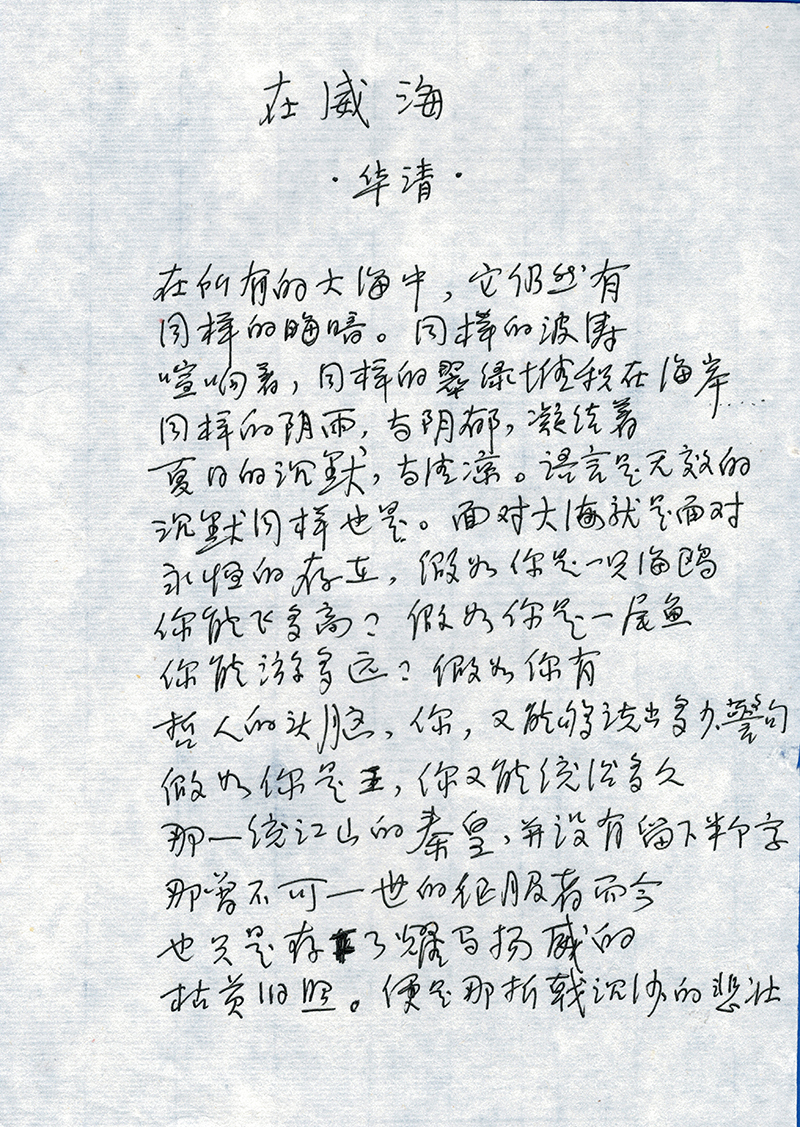 在威海
·华清·
在所有的大海中，它仍然有
同样的晦暗。同样的波涛
喧响着，同样的翠绿堆积在海岸
同样的阴雨，与阴郁，凝结着
夏日的沉默，与凄凉。语言是无效的
沉默同样也是。面对大海就是面对
永恒的存在，假如你是一只海鸥
你能飞多高？假如你是一尾鱼
你能游多远？假如你有
哲人的头脑，你，又能够说出多少警句
假如你是王，你又能统治多久
那一统江山的秦皇，并没有留下半个字
那曾不可一世的征服者而今
也只是存了耀马扬威的
枯黄旧照。便是那折戟沉沙的悲壮